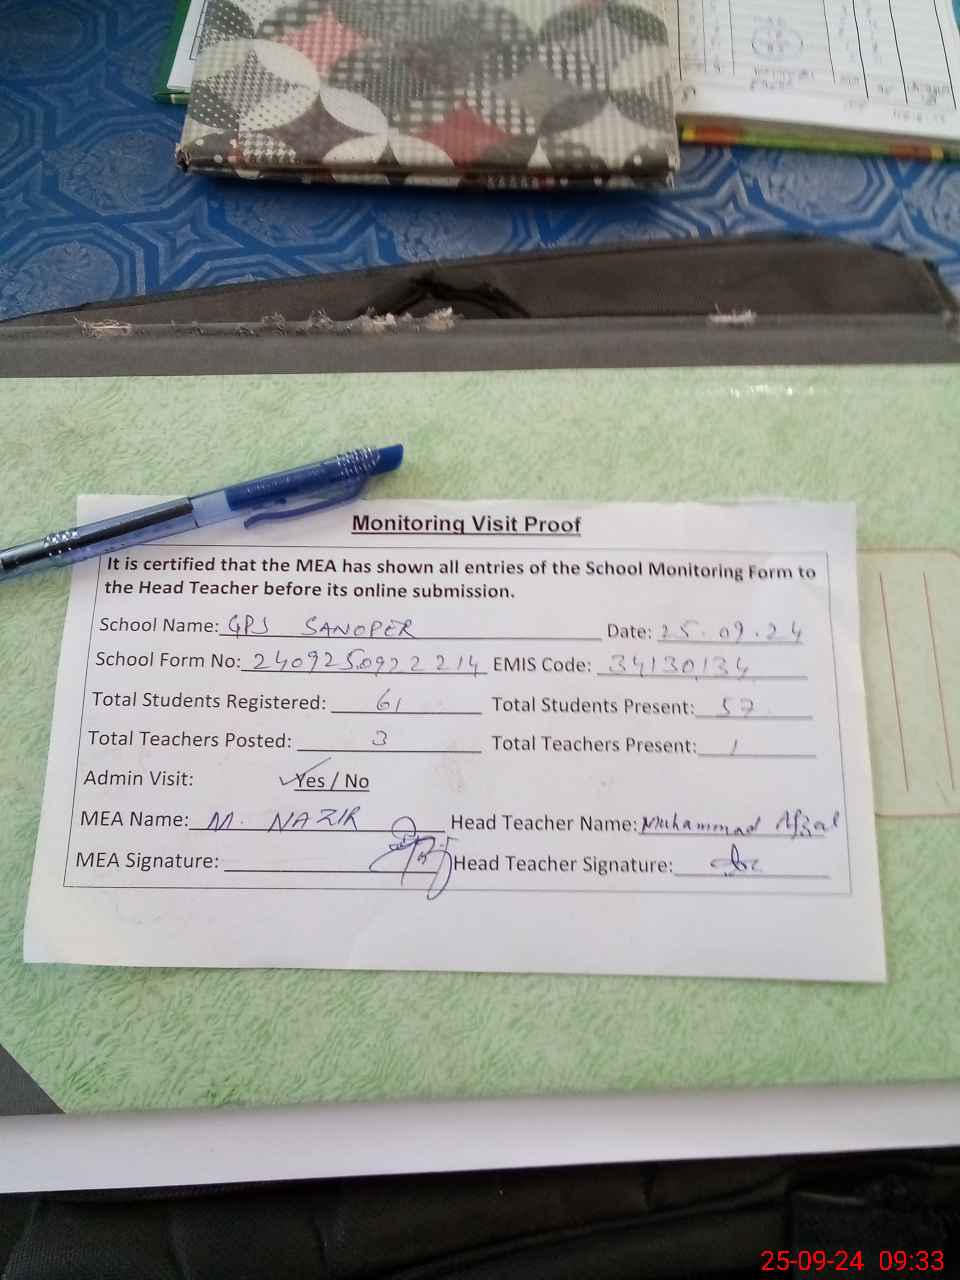 Monitoring Visit Proof
It is certified that the MEA has shown all entries of the School Monitoring Form to
the Head Teacher before its online submission.
School Name: GPS SANOPER Date: 25.09.24
School Form No: 2409250922214 EMIS Code: 34130134
Total Students Registered: 61 Total Students Present: 57
Total Teachers Posted: 3 Total Teachers Present: 1
Admin Visit: Yes / No
MEA Name: M. NAZIR Head Teacher Name: Muhammad Afzal
MEA Signature: Head Teacher Signature:
25-09-24 09:33